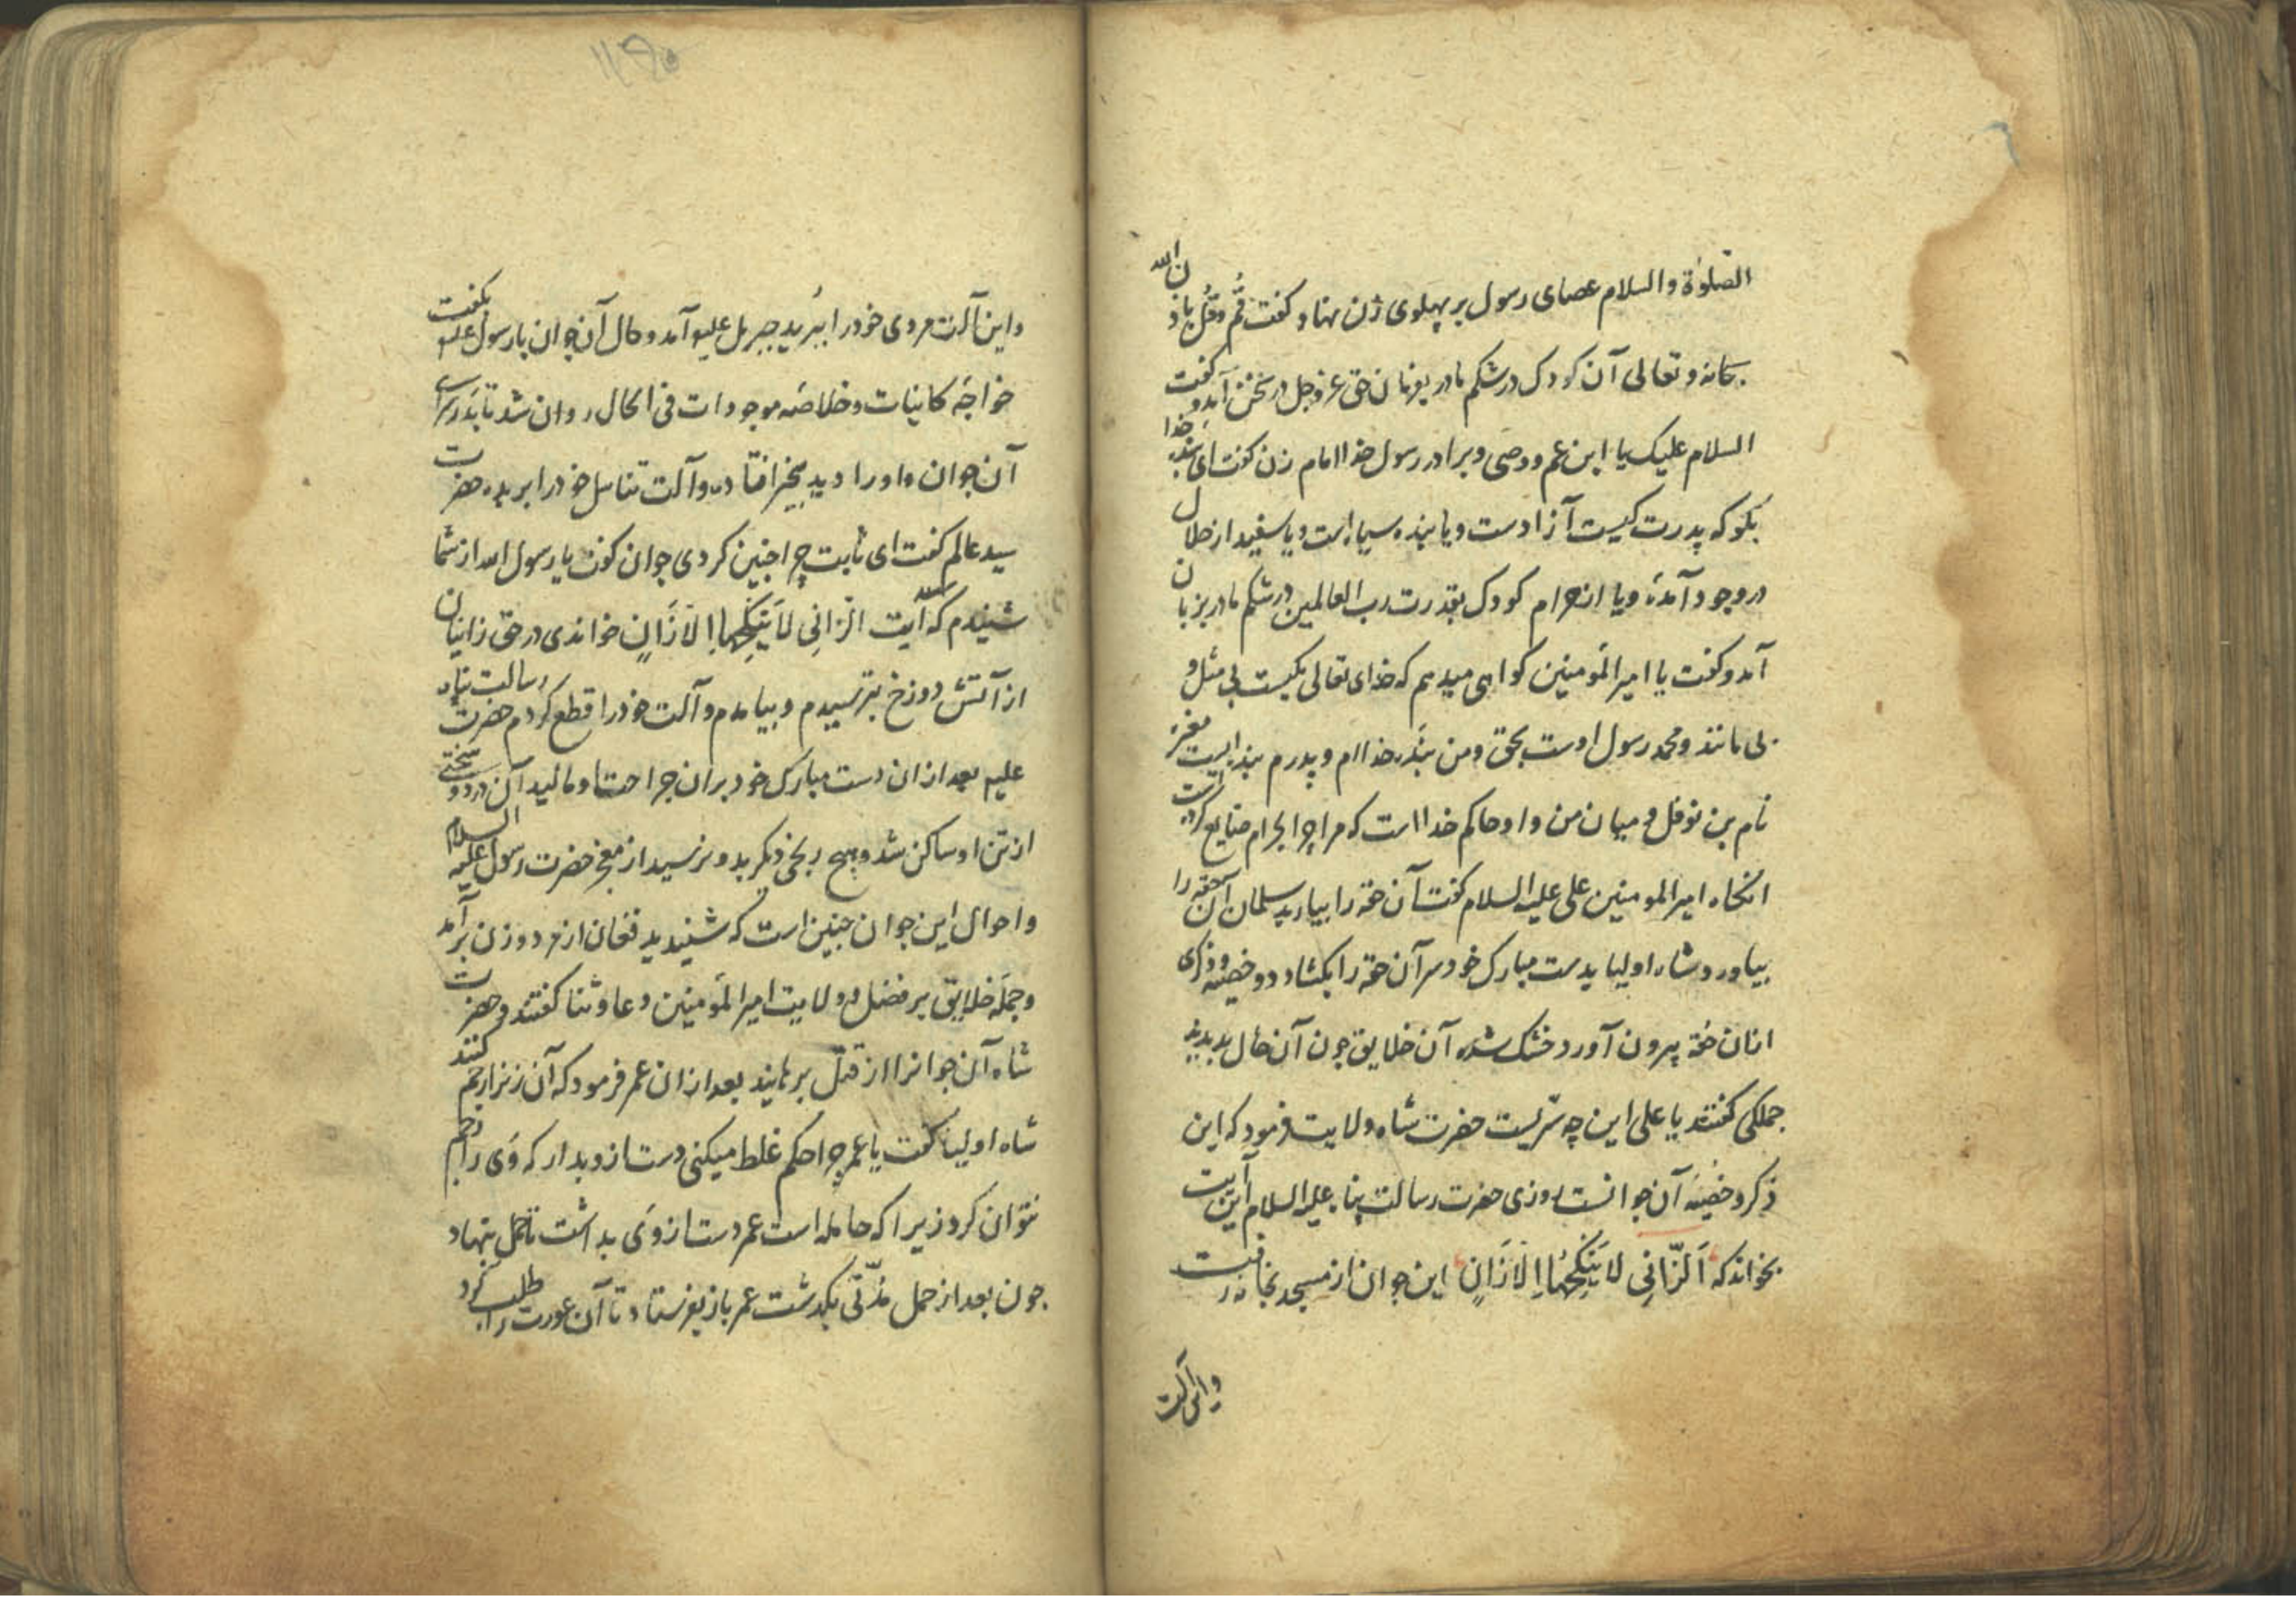 الصّلوٰة والسلام عصای رسول بر پهلوی زن نهاد و کفت قُم وقُل باذن الله
سبحانه وتعالی آن کودک در شکم مادر بفرمان حق عزوجل در سخن آمد و کفت
السلام علیک یا ابن عم ووصی وبرادر رسول خدا امام زن کفت ای بنده خدا
بکو که پدرت کیست آزادست ویا بنده سیاه است ویا سفید از حلال
در وجود آمدهٔ ویا از حرام کودک بقدرت رب العالمین در شکم مادر بزبان
آمد وکفت یا امیرالمؤمنین کواهی میدهم که خدای تعالی یکیست بی مثل و
بی مانند ومحمد رسول اوست بحق ومن بنده خداام وپدرم بنده ایست مغیره
نام بن نوفل ومیان من واو حاکم خدا است که مرا چرا بحرام ضایع کرده است
انکاه امیرالمومنین علی علیه السلام کفت آن حقه را بیارید سلمان آن حقه را
بیاورد وشاه اولیا بدست مبارک خود سر آن حقه را بکشاد دو خصیه وذکری
ازان حقه بیرون آورد خشک شده آن خلایق چون آن حال بدیدند
جملکی کفتند یا علی این چه سرّیست حضرت شاه ولایت فرمود که این
ذکر وخصیهٔ آن جوانست روزی حضرت رسالت پناه علیه السلام این آیت
بخواند که اَلزّانِی لا یَنکِحُهَا اِلّا زَانٍ این جوان از مسجد بخانه رفت
واین آلت
واین آلت مردی خود را ببُرید جبریل علیه آمد وحال آن جوان با رسول علیه بکفت
خواجهٔ کاینات وخلاصهٔ موجودات فی الحال روان شد تا بدر سرای
آن جوان واورا دید بیخبر افتاده وآلت تناسل خود را بریده حضرت
سید عالم کفت ای ثابت چرا چنین کردی جوان کفت یا رسول الله از شما
شنیدم که آیت الزانِی لا یَنکِحُهَا اِلّا زَانٍ خواندی در حق زانیان
از آتش دوزخ بترسیدم وبیامدم وآلت خود را قطع کردم حضرت رسالت پناه
علیه بعد ازان دست مبارک خود بران جراحت او مالید آن درد و سختی
از تن او ساکن شد وهیچ رنجی دیکر بدو نرسید از معجز حضرت رسول علیه السلام
واحوال این جوان چنین است که شنیدید فغان از مرد وزن برآمد
وجمله خلایق بر فضل وولایت امیرالمؤمنین دعا وثنا کفتند وحضرت
شاه آن جوانرا از قتل برهانید بعد ازان عمر فرمود که آن زنرا رجم کنند
شاه اولیا کفت یا عمر چرا حکم غلط میکنی دست ازو بدار که وَی را رجم
نتوان کرد زیرا که حامله است عمر دست از وَی بداشت تا حمل بنهاد
چون بعد از حمل مُدّتی بکذشت عمر باز بفرستاد تا آن عورت را طلب کرد